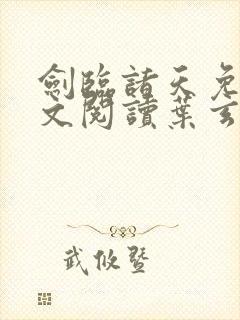 劍臨諸天免
文閱讀葉玄
武攸暨